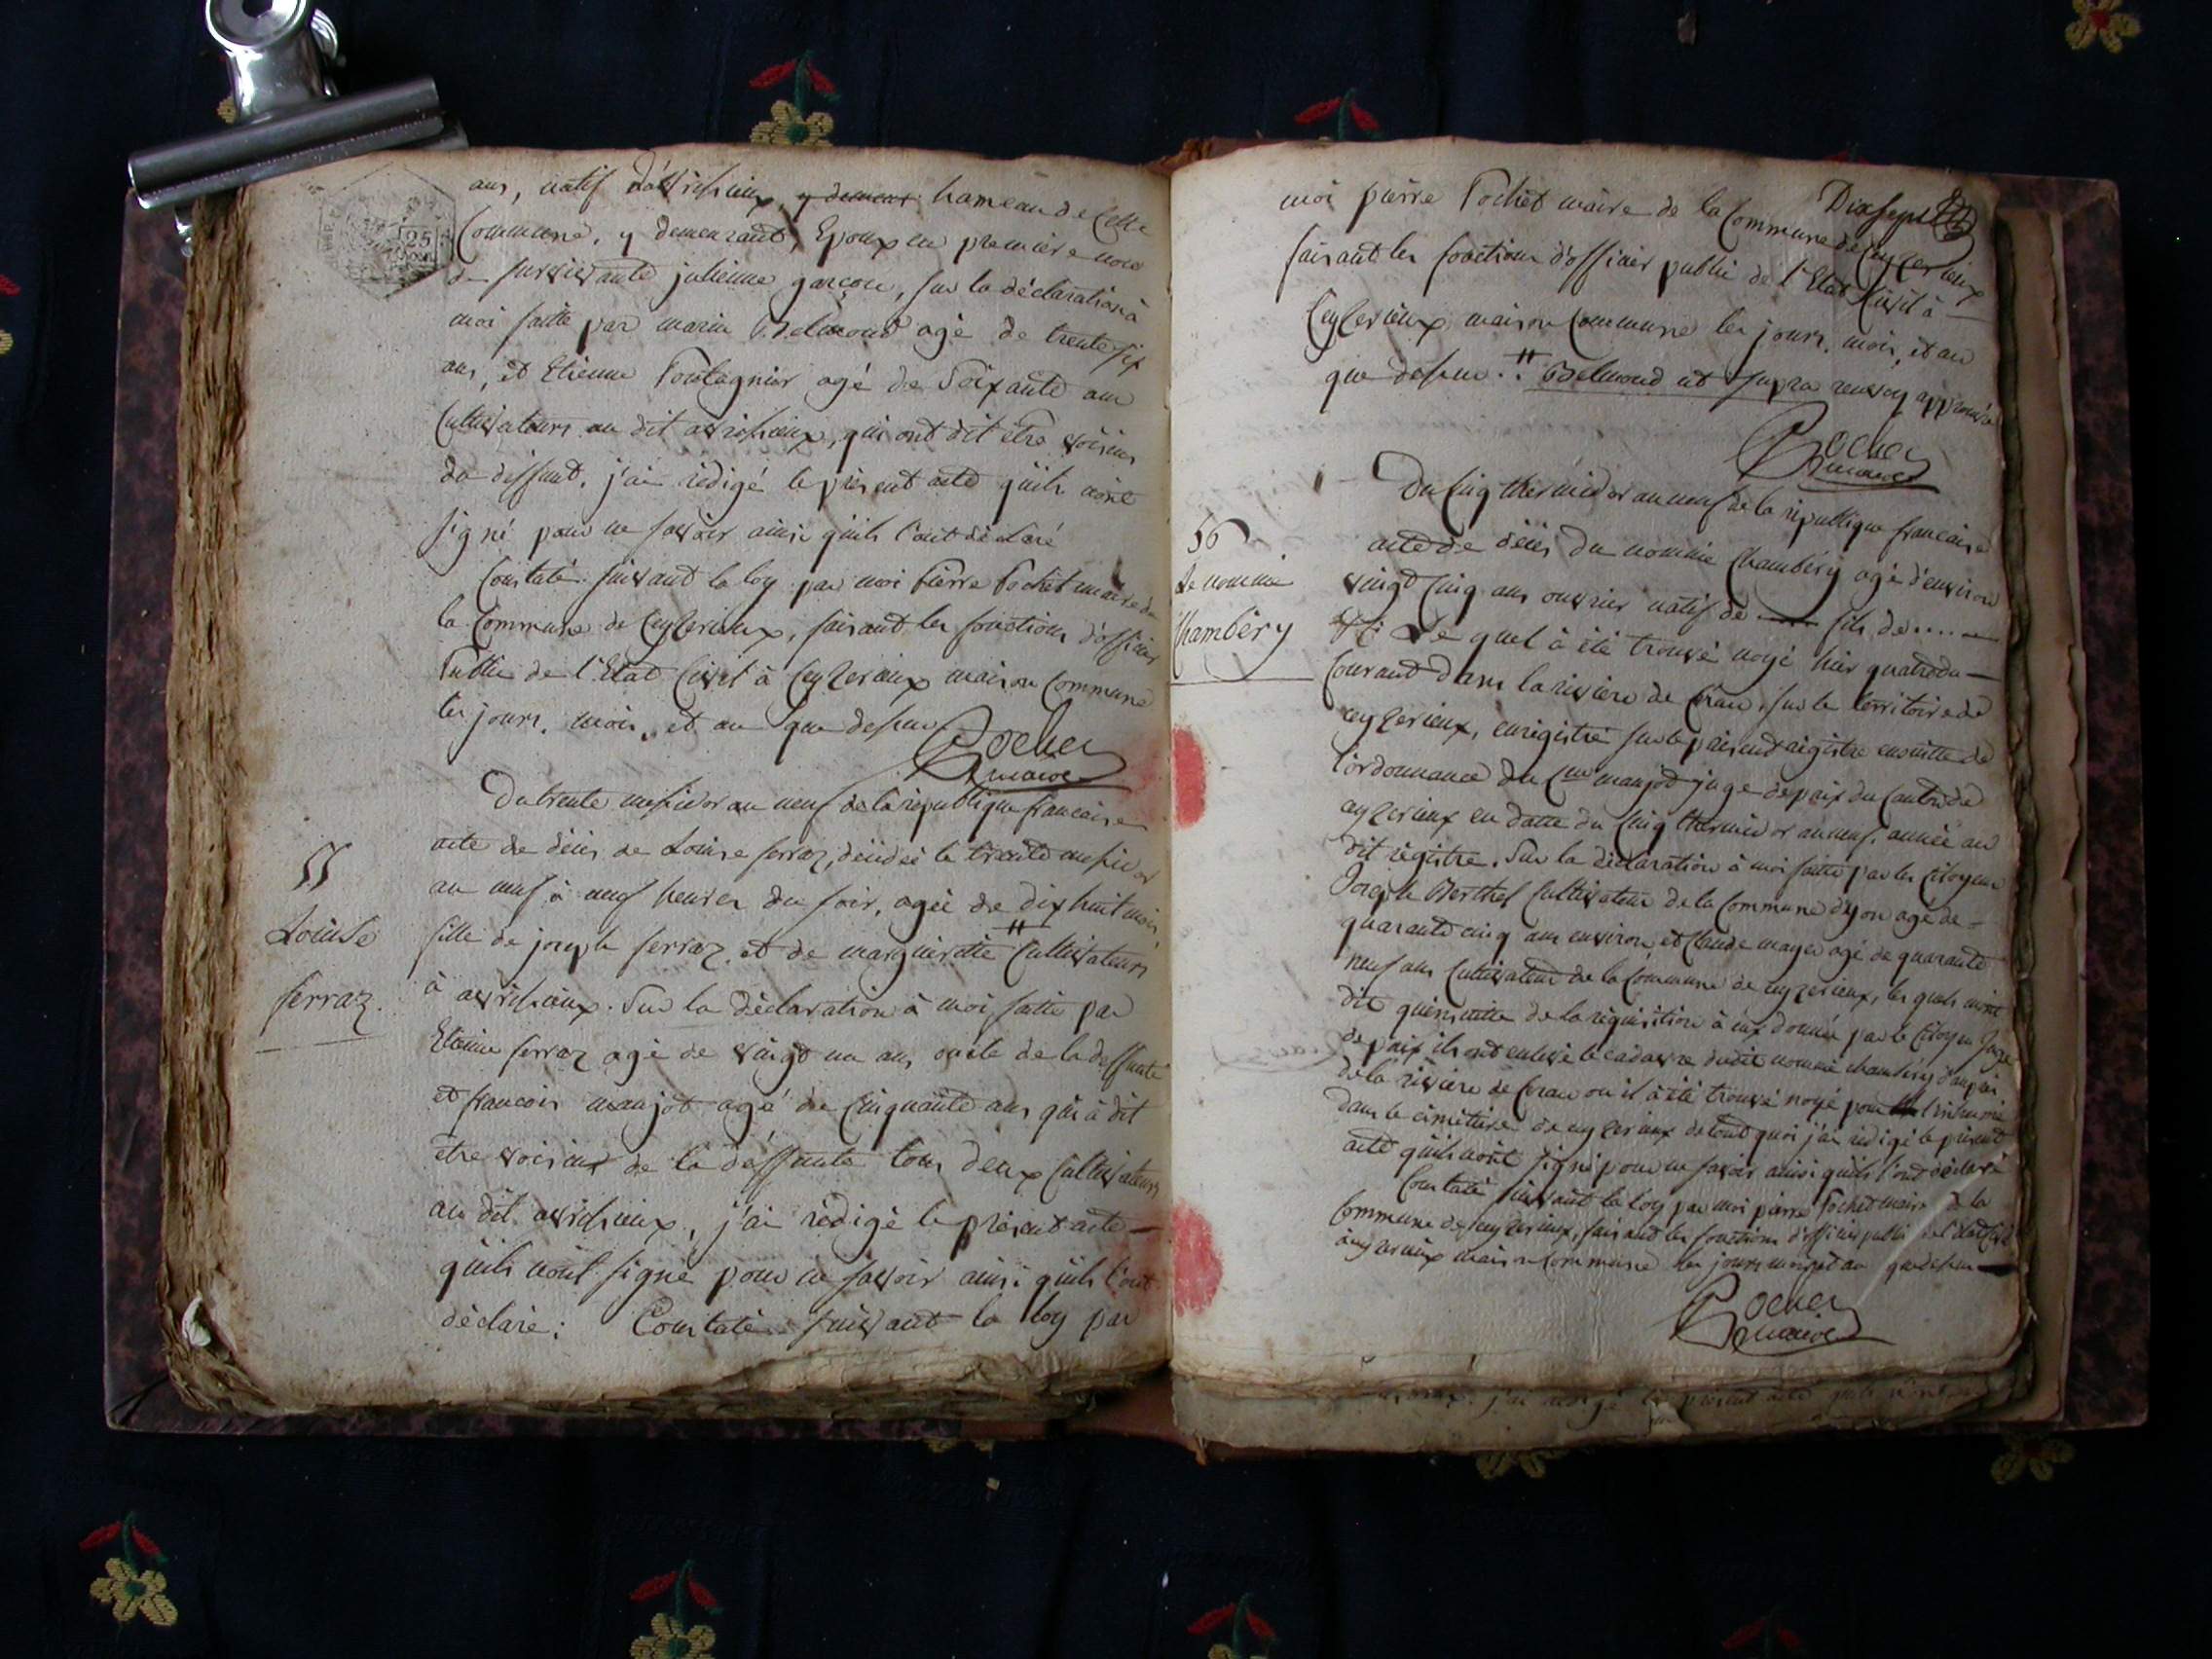 25
ans, natif d'avrissieux, y demeur hameau de Cette
Commune, y demeurant, Epoux en premiere noce
de survivante julienne garçon, sur la déclaration à
moi faitte par marin Belmond agé de trente six
ans, et Etienne Pontagnier agé de Soixante ans
Cultivateurs au dit avrissieux, qui ont dit être voisins
du deffunt, j'ai rédigé le présent acte qu'ils n'ont
signé pour ne savoir ainsi qu'ils l'ont déclaré
Constaté suivant la loy par moi Pierre Pochet maire de
la Commune de Ceyzerieux, faisant les fonctions d'officier
Public de l'Etat Civil à Ceyzerieux maison Commune
les jours, mois, et an que dessus
Pochet
maire
Du trente messidor an neuf de la république francaise
acte de décés de Louise ferraz, décédée le trente messidor
an neuf à neuf heures du soir, agée de dix huit mois,
fille de joseph ferraz, et de margueritte # Cultivateurs
à avrissieux. Sur la déclaration à moi faitte par
Etienne ferraz agé de vingt un ans, oncle de la deffunte
et francois manjot agé de Cinquante ans qui à dit
être voisin de la deffunte tous deux Cultivateurs
au dit avrissieux, j'ai rédigé le présent acte
qu'ils n'ont signé pour ne savoir ainsi qu'ils l'ont
déclaré; Constaté suivant la loy par
55
Louise
ferraz.
Dix sept
moi pierre Pochet maire de la Commune de Ceyzerieux
faisant les fonctions d'officier public de l'Etat Civil à
Ceyzerieux maison Commune les jours, mois, et an
que dessus. # Belmond ut supra renvoy approuvé
Pochet
maire
Du Cinq thermidor an neuf de la république francaise
acte de décés du nommé Chambéry agé d'environ
vingt Cinq ans ouvrier natif de fils de ....
Le quel à été trouvé noyé hier quatre du
Courant dans la riviere de Cerau, sur le territoire de
ceyzerieux, enrégistré sur le présent régistre ensuitte de
l'ordonnance du Cen manjot juge de paix du Canton de
ceyzerieux en datte du Cinq thermidor an neuf, année au
dit régistre. Sur la déclaration à moi faitte par les Citoyens
Joseph Berthet Cultivateur de la Commune d'yon agé de
quarante cinq ans environ et Claude mayer agé de quarante
neuf ans Cultivateur de la Commune de ceyzerieux, les quels m'ont
dit qu'ensuitte de la réquisition à eux donnée par le Citoyen Juge
de paix ils ont enlevé le cadavre dudit nommé chambéry d'auprès
de la riviere de Cerau ou il à été trouvé noyé pour l'inhumé
dans le cimettiere de ceyzerieux de tout quoi j'ai rédigé le présent
acte qu'ils n'ont signé pour ne savoir ainsi qu'ils l'ont déclaré
Constaté suivant la loy par moi pierre Pochet maire de la
Commune de ceyzerieux, faisant les fonctions d'officier public de l'Etat Civil
à ceyzerieux maison Commune les jours mois et an que dessus
Pochet
maire
56
Le nommé
Chambéry
j'ai rédigé le présent acte qu'ils n'ont